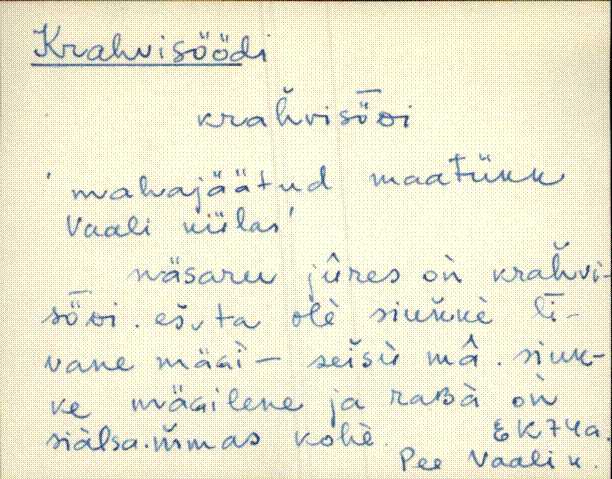 Krahvisöödi
krah̆visȫᴅi
'mahajäätud maatükk
Vaali külas'
näsaru jûres oǹ krah̆vi-
sȫᴅi. eš, ta olè siuk̆kè lī-
vane mäɢi – seĭsù mâ. siuk-
ke mäɢilene ja raʙà oǹ
siàlsa. m̆mas kohè. EK74a.
Pee Vaali k.